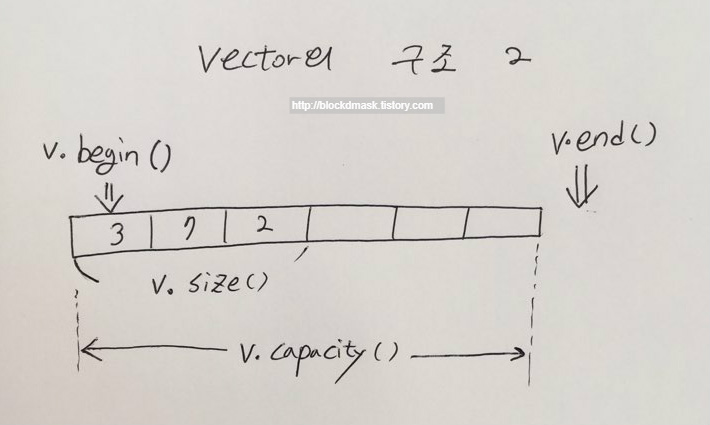 vector의 구조 2
http://blockdmask.tistory.com
v.begin()
v.end()
3 7 2
v.size()
v.capacity()